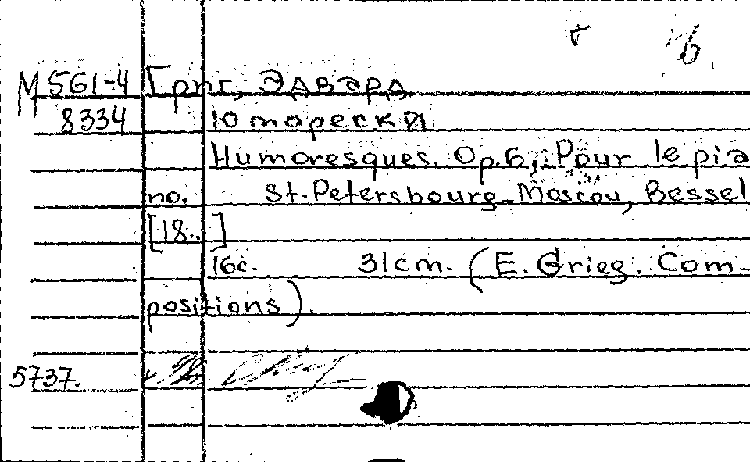 б
М561-4 Григ, Эдвард
8334 Юморески
Humoresques. Op.6, Pour le pia
no. St.-Petersbourg-Moscou, Bessel
[18..]
16с. 31cm. (E. Grieg. Com
positions).
5737.